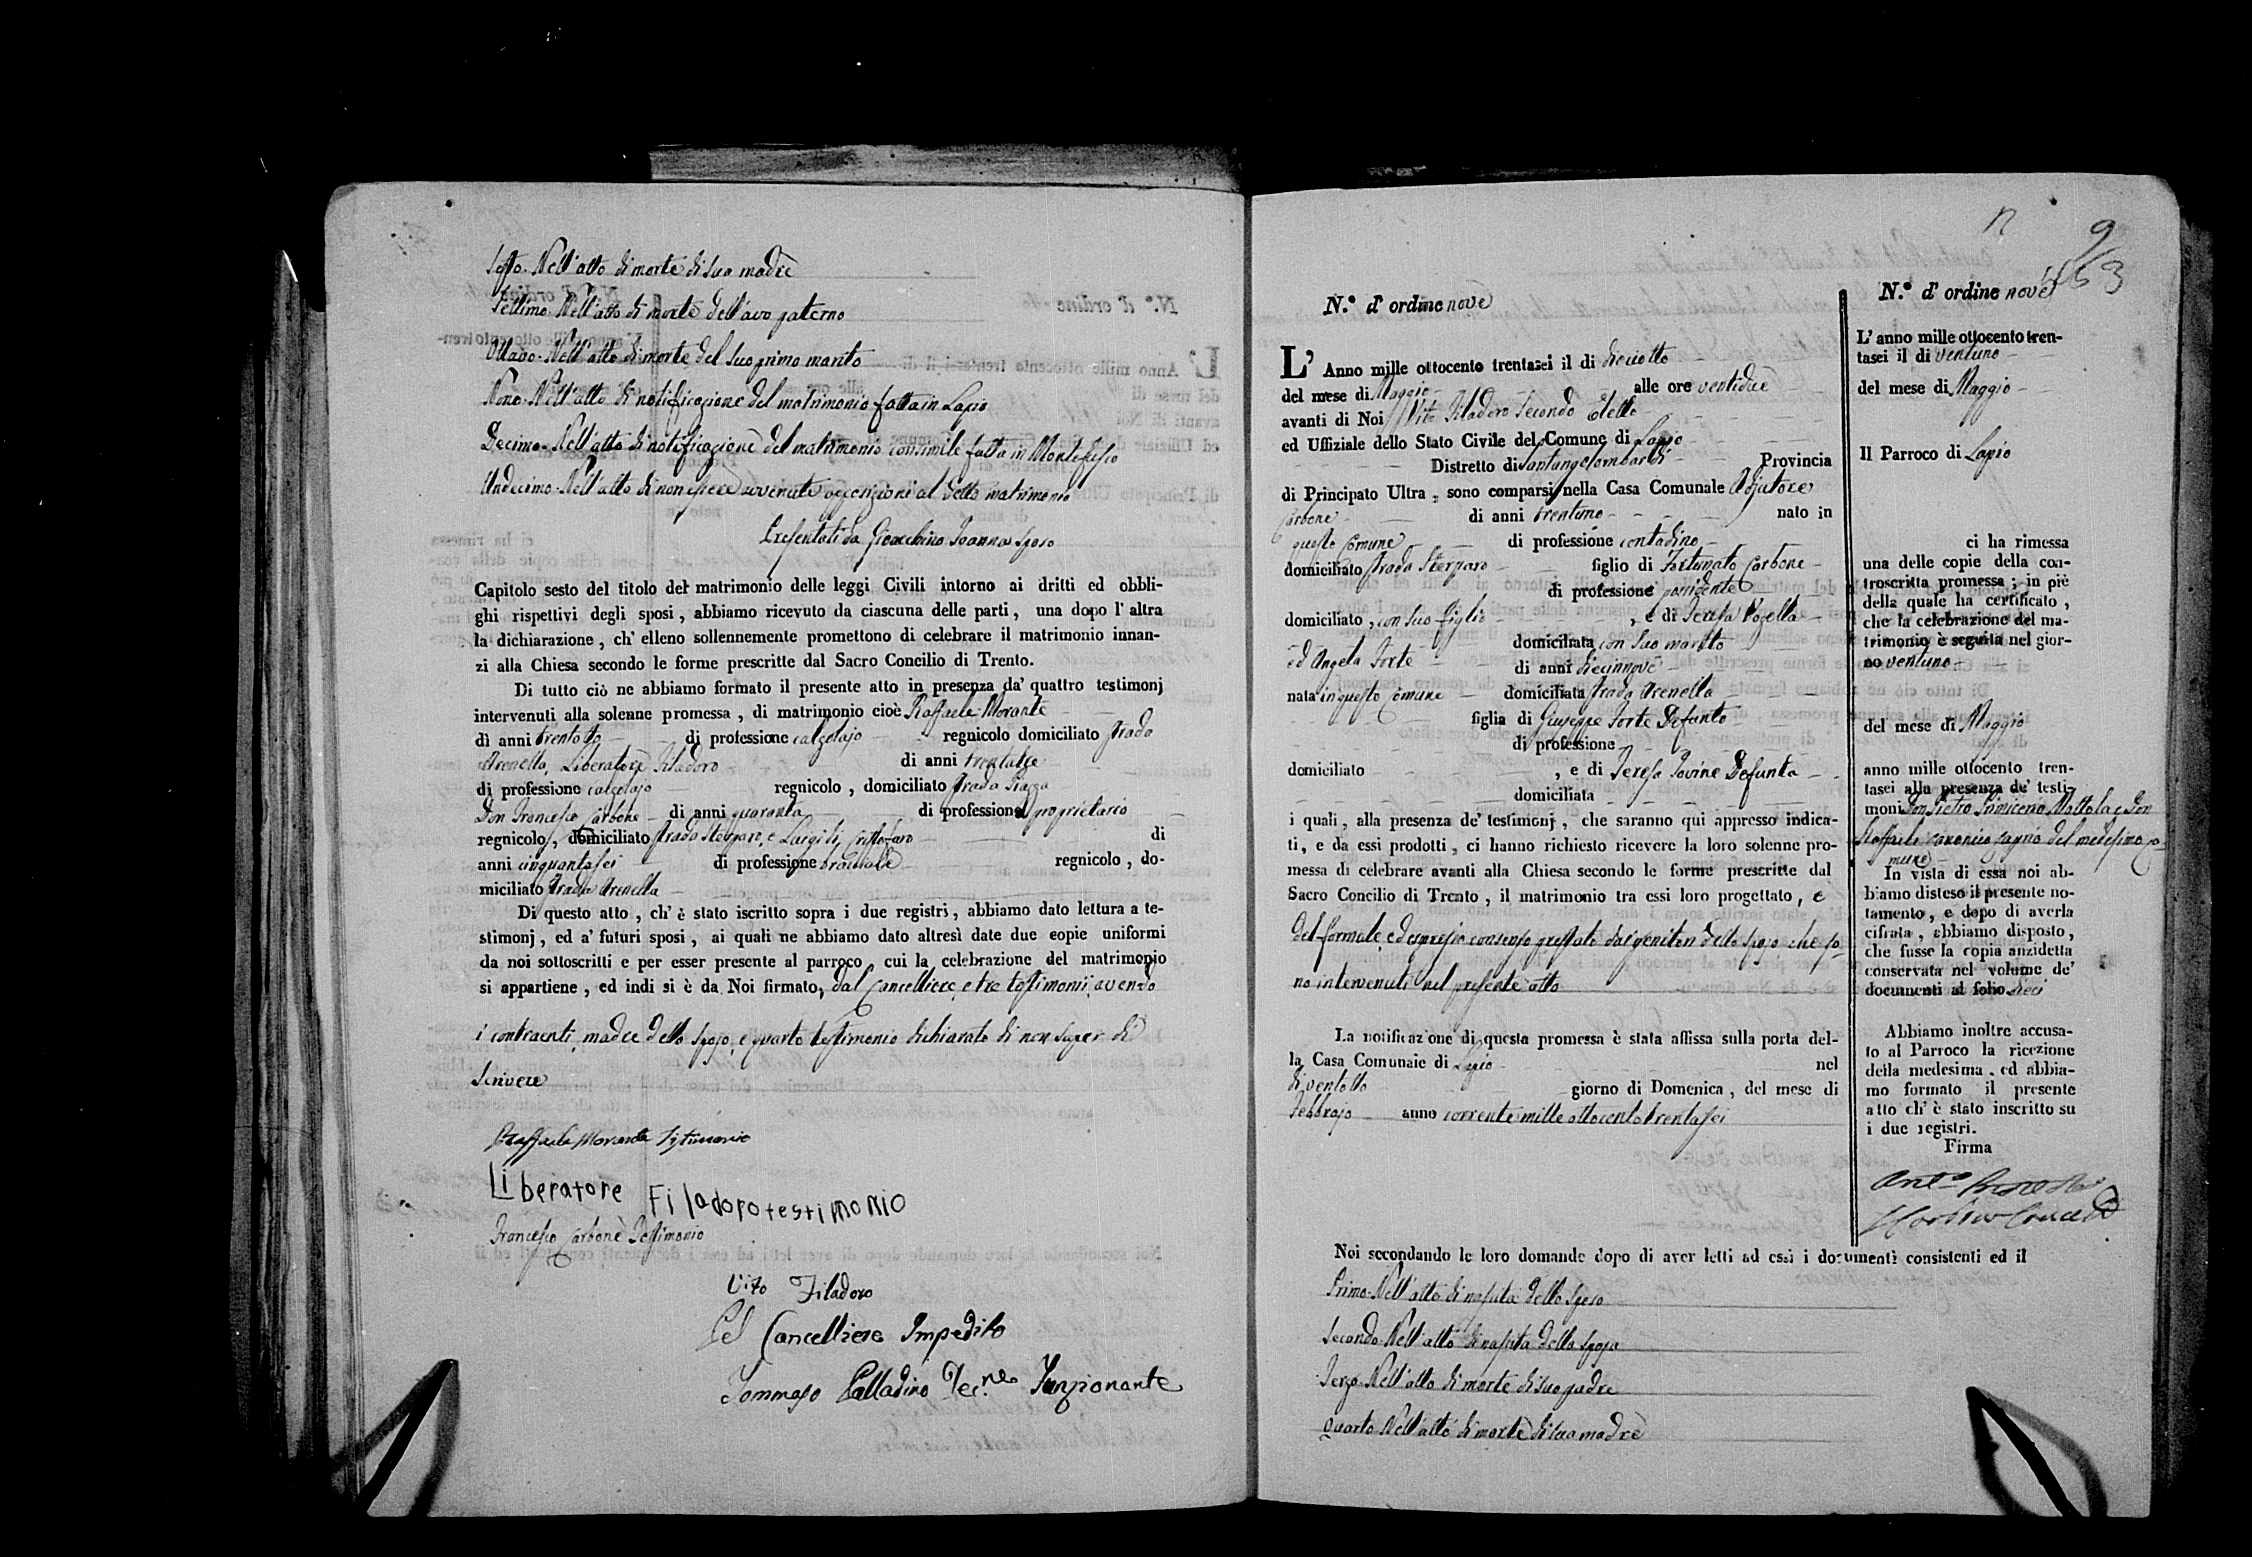 Sesto. Nell'atto di morte di sua madre
Settimo. Nell'atto di morte dell'avo paterno
Ottavo. Nell'atto di morte del suo primo marito
Nono. Nell'atto di notificazione del matrimonio fatta in Lapio
Decimo. Nell'atto di notificazione del matrimonio consimile fatta in Montefusco
Undecimo. Nell'atto di non essere avvenute opposizioni al detto matrimonio
Presentati da Gioacchino Ioanna sposo
Capitolo sesto del titolo del matrimonio delle leggi Civili intorno ai dritti ed obbli-
ghi rispettivi degli sposi, abbiamo ricevuto da ciascuna delle parti, una dopo l'altra
la dichiarazione, ch'elleno sollennemente promettono di celebrare il matrimonio innan-
zi alla Chiesa secondo le forme prescritte dal Sacro Concilio di Trento.
Di tutto ciò ne abbiamo formato il presente atto in presenza da' quattro testimonj
intervenuti alla solenne promessa, di matrimonio cioè Raffaele Morante
di anni trentotto di professione calzolajo regnicolo domiciliato strada
Arenella, Liberatore Filadoro di anni trentatre
di professione calzolajo regnicolo, domiciliato strada Piazza
Don Francesco Carbone di anni quaranta di professione proprietario
regnicolo, domiciliato strada Sterparo, e Luigi di Cristofaro di
anni cinquantasei di professione bracciale regnicolo, do-
miciliato strada Arenella
Di questo atto, ch'è stato iscritto sopra i due registri, abbiamo dato lettura a te-
stimonj, ed a' futuri sposi, ai quali ne abbiamo dato altresì date due copie uniformi
da noi sottoscritti e per esser presente al parroco cui la celebrazione del matrimonio
si appartiene, ed indi si è da Noi firmato, dal Cancelliere, e tre testimonii, avendo
i contraenti, madre dello sposo, e quarto testimonio dichiarato di non saper di
scrivere
Raffaele Morante Testimonio
Liberatore Filadoro testimonio
Francesco Carbone Testimonio
Vito Filadoro
Pel Cancelliere Impedito
Tommaso Palladino Dec.ne Funzionante
9
463
N.° d'ordine nove
L'Anno mille ottocento trentasei il di dieciotto
del mese di Maggio alle ore ventidue
avanti di Noi Vito Filadoro Secondo Eletto
ed Uffiziale dello Stato Civile del Comune di Lapio
Distretto di Santangelombardi Provincia
di Principato Ultra, sono comparsi nella Casa Comunale Adjutore
Carbone di anni trentuno nato in
questo Comune di professione contadino
domiciliato strada Sterparo figlio di Fortunato Carbone
di professione possidente
domiciliato, con suo figlio, e di Teresa Vozella
domiciliata con suo marito
ed Angela Forte di anni diecinnove
nata in questo Comune domiciliata strada Arenella
figlia di Giuseppe Forte Defunto
di professione
domiciliato, e di Teresa Iovine Defunta
domiciliata
i quali, alla presenza de' testimonj, che saranno qui appresso indica-
ti, e da essi prodotti, ci hanno richiesto ricevere la loro solenne pro-
messa di celebrare avanti alla Chiesa secondo le forme prescritte dal
Sacro Concilio di Trento, il matrimonio tra essi loro progettato, e
del formale, ed espresso consenso prestato dai genitori dello sposo che so-
no intervenuti nel presente atto
La notificazione di questa promessa è stata affissa sulla porta del-
la Casa Comunale di Lapio nel
di ventotto giorno di Domenica, del mese di
Febbrajo anno corrente mille ottocento trentasei
N.° d'ordine nove
L'anno mille ottocento tren-
tasei il di ventuno
del mese di Maggio
Il Parroco di Lapio
ci ha rimessa
una delle copie della con-
troscritta promessa; in piè
della quale ha certificato,
che la celebrazione del ma-
trimonio è seguita nel gior-
no ventuno
del mese di Maggio
anno mille ottocento tren-
tasei alla presenza de' testi-
moni Don Pietro Primicerio Mottola, e Don
Raffaele canonico Cagno del medesimo co-
mune
In vista di essa noi ab-
biamo disteso il presente no-
tamento, e dopo di averla
cifrata, abbiamo disposto,
che fusse la copia anzidetta
conservata nel volume de'
documenti al folio dieci
Abbiamo inoltre accusa-
to al Parroco la ricezione
della medesima, ed abbia-
mo formato il presente
atto ch'è stato inscritto su
i due registri.
Firma
Noi secondando le loro domande dopo di aver letti ad essi i documenti consistenti ed il
Primo. Nell'atto di nascita dello sposo
Secondo. Nell'atto di nascita della sposa
Terzo. Nell'atto di morte di suo padre
Quarto. Nell'atto di morte di sua madre